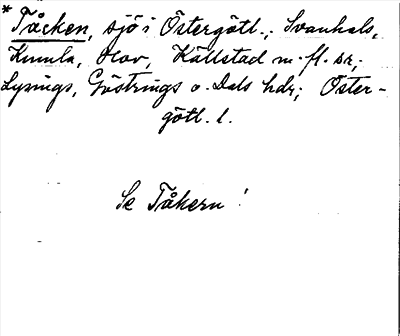 * Tåcken, sjö i Östergötl.; Svanhals,
Kumla, Hov, Källstad m. fl. sr,
Lysings, Göstrings o. Dals hdr; Öster-
götl. l.
Se Tåkern!